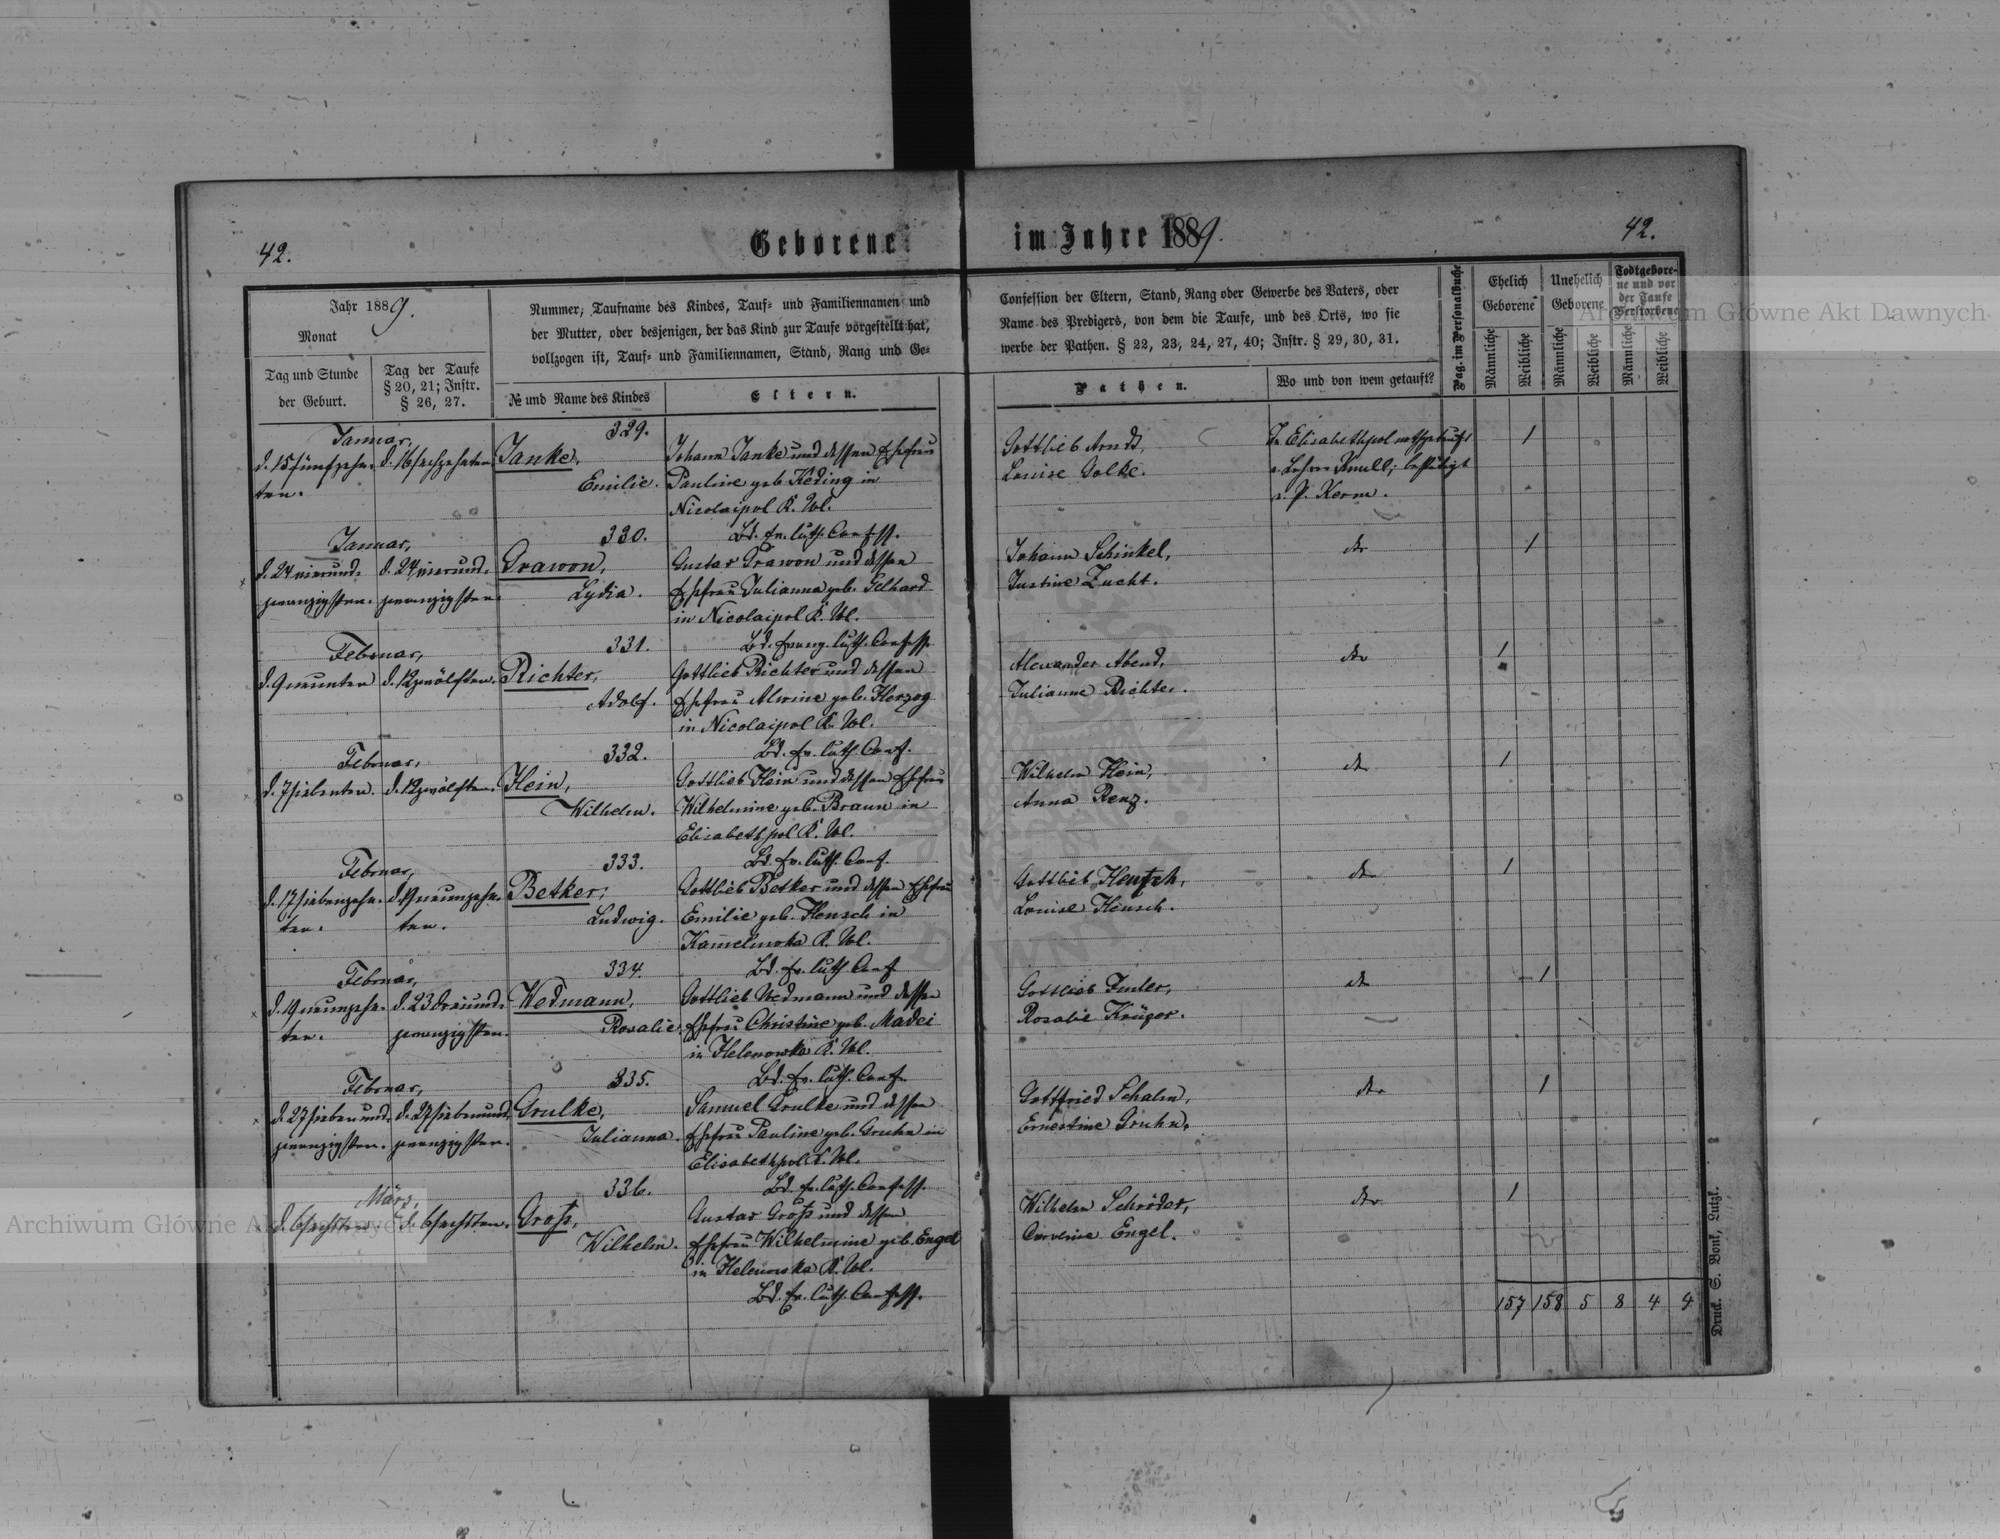 42.
Geborene im Jahre 1889.
42.
Jahr 1889.
Monat
Tag und Stunde
der Geburt.
Tag der Taufe
§ 20, 21; Instr.
§ 26, 27.
Nummer; Taufname des Kindes, Tauf- und Familiennamen und
der Mutter, oder desjenigen, der das Kind zur Taufe vorgestellt hat,
vollzogen ist, Tauf- und Familiennamen, Stand, Rang und Ge-
№ und Name des Kindes
Eltern.
Confession der Eltern, Stand, Rang oder Gewerbe des Vaters, oder
Name des Predigers, von dem die Taufe, und des Orts, wo sie
werbe der Pathen. § 22, 23, 24, 27, 40; Instr. § 29, 30, 31.
Pathen.
Wo und von wem getauft?
Pag. im Personalbuche
Ehelich
Geborene
Unehelich
Geborene
Todtgebore-
ne und vor
der Taufe
Verstorbene
Männliche
Weibliche
Männliche
Weibliche
Männliche
Weibliche
Januar,
d. 15 fünfzehn-
ten.
d. 16 sechzehnten
329.
Janke,
Emilie.
Johann Janke und dessen Ehefrau
Pauline geb. Keding in
Nicolaipol K. Wol.
Bd. ev. luth. Confess.
Gottlieb Arndt,
Louise Golke.
In Elisabethpol nothgetauft
v. Lehrer Knull; bestätigt
v. P. Kerm.
1
Januar,
d. 24 vierund-
zwanzigsten.
d. 24 vierund-
zwanzigsten
330.
Grawon,
Lydia.
Gustav Grawon und dessen
Ehefrau Julianna geb. Gelhard
in Nicolaipol K. Wol.
Bd. evang. luth. Confess.
Johann Schinkel,
Justine Zucht.
1
Februar,
d. 9 neunten
d. 12 zwölften.
331.
Richter,
Adolf.
Gottlieb Richter und dessen
Ehefrau Alwine geb. Herzog
in Nicolaipol K. Wol.
Bd. ev. luth. Conf.
Alexander Abend,
Julianne Richter.
1
Februar,
d. 7 siebenten.
d. 12 zwölften.
332.
Hein,
Wilhelm.
Gottlieb Hein und dessen Ehefrau
Wilhelmine geb. Braun in
Elisabethpol K. Wol.
Bd. ev. luth. Conf.
Wilhelm Hein,
Anna Renz.
1
Februar,
d. 17 siebenzehn-
ten.
d. 19 neunzehn-
ten.
333.
Betker,
Ludwig.
Gottlieb Betker und dessen Ehefrau
Emilie geb. Hensch in
K. Wol.
Bd. ev. luth. Conf
Gottlieb Hensch,
Louise Hensch.
1
Februar,
d. 19 neunzehn-
ten.
d. 23 dreiund-
zwanzigsten.
334.
Wedmann,
Rosalie.
Gottlieb Wedmann und dessen
Ehefrau Christine geb. Madei
in Helenowka K. Wol.
Bd. ev. luth. Conf.
Gottlieb
Rosalie Krüger.
1
Februar,
d. 27 siebenund-
zwanzigsten.
d. 27 siebenund-
zwanzigsten.
335.
Grulke,
Julianna.
Samuel Grulke und dessen
Ehefrau Pauline geb. Gruhn in
Elisabethpol K. Wol.
Bd. ev. luth. Confess.
Gottfried Schalm,
Ernestine Gruhn.
1
März,
d. 6 sechsten
d. 6 sechsten.
336.
Groß,
Wilhelm.
Gustav Groß und dessen
Ehefrau Wilhelmine geb. Engel
in Helenowka K. Wol.
Bd. ev. luth. Confess.
Wilhelm Schröder,
Engel.
1
157 158 5 8 4 4
Druck. S. Bonk, Lutzk.
Archiwum Główne Akt Dawnych
Archiwum Główne Akt Dawnych